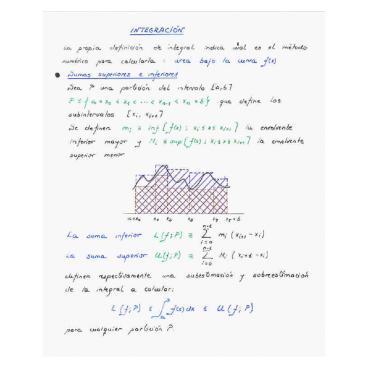 INTEGRACIÓN
La propia definición de integral indica cuál es el método
numérico para calcularla: área bajo la curva f(x)
• Sumas superiores e inferiores
Sea P una partición del intervalo [a,b]
P = { a = x₀ < x₁ < ... < xₙ₋₁ < xₙ = b } que define los
subintervalos [xᵢ, xᵢ₊₁]
Se definen mᵢ = inf { f(x) : xᵢ ≤ x ≤ xᵢ₊₁ } la envolvente
inferior mayor y Mᵢ = sup { f(x) : xᵢ ≤ x ≤ xᵢ₊₁ } la envolvente
superior menor
La suma inferior L(f; P) = ∑ᵢ₌₀ⁿ⁻¹ mᵢ (xᵢ₊₁ - xᵢ)
La suma superior U(f; P) = ∑ᵢ₌₀ⁿ⁻¹ Mᵢ (xᵢ₊₁ - xᵢ)
definen respectivamente una subestimación y sobreestimación
de la integral a calcular:
L(f; P) ≤ ∫ₐᵇ f(x) dx ≤ U(f; P)
para cualquier partición P.